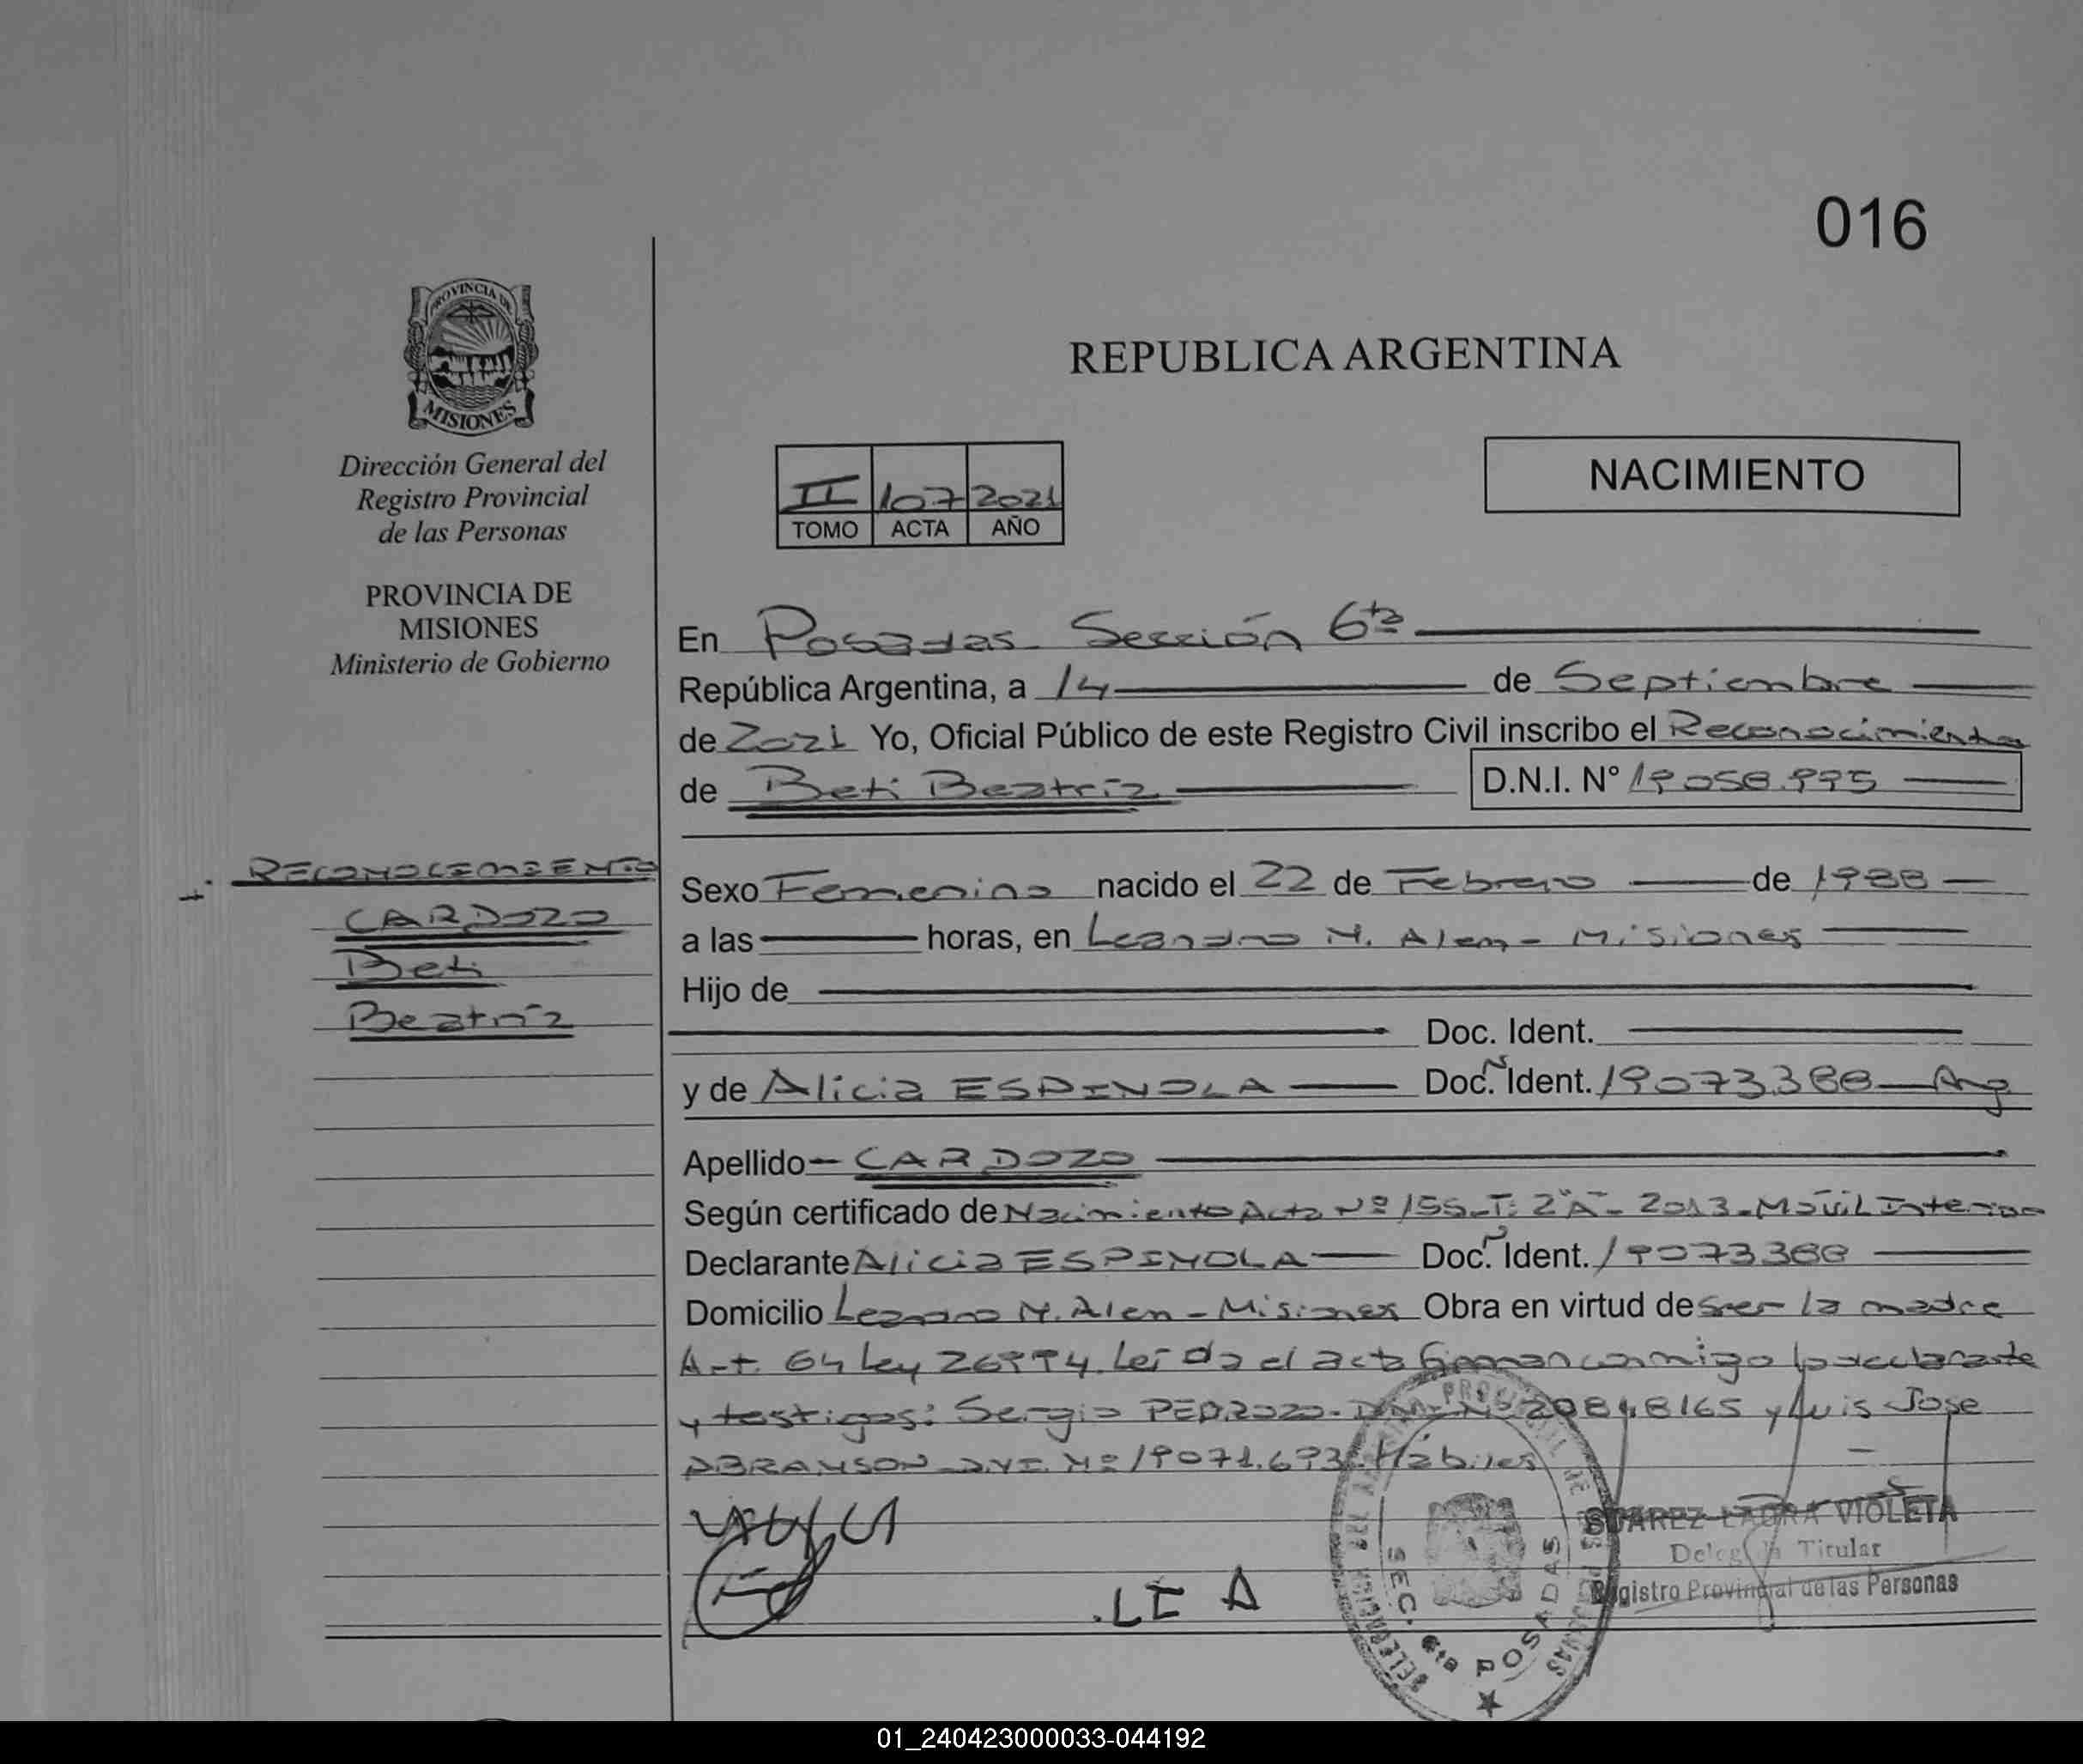 016
PROVINCIA DE
MISIONES
REPUBLICA ARGENTINA
Dirección General del
Registro Provincial
de las Personas
PROVINCIA DE
MISIONES
Ministerio de Gobierno
NACIMIENTO
II 107 2021
TOMO ACTA AÑO
En Posadas Sección 6ta
República Argentina, a 14 de Septiembre
de 2021 Yo, Oficial Público de este Registro Civil inscribo el Reconocimiento
de Beti Beatríz D.N.I. N° 19058.995
RECONOCIMIENTO
CARDOZO
Beti
Beatríz
Sexo Femenino nacido el 22 de Febrero de 1988
a las horas, en Leandro N. Alem - Misiones
Hijo de
Doc. Ident.
y de Alicia ESPINOLA Doc. Ident. 19073.388 Arg
Apellido CARDOZO
Según certificado de Nacimiento Acta Nº 155 T: 2"A" - 2013 - Móvil Interior
Declarante Alicia ESPINOLA Doc. Ident. 19073388
Domicilio Leandro N. Alem - Misiones Obra en virtud de ser la madre
Art. 64 Ley 26994. Leída el acta firman conmigo declarante
y testigos: Sergio PEDROZO - y Luis Jose
ABRAMSON D.N.I. Nº 19071.693. Hábiles
SUAREZ LAURA VIOLETA
Titular
Registro Provincial de las Personas
SEC. 6ta POSADAS
01_240423000033-044192